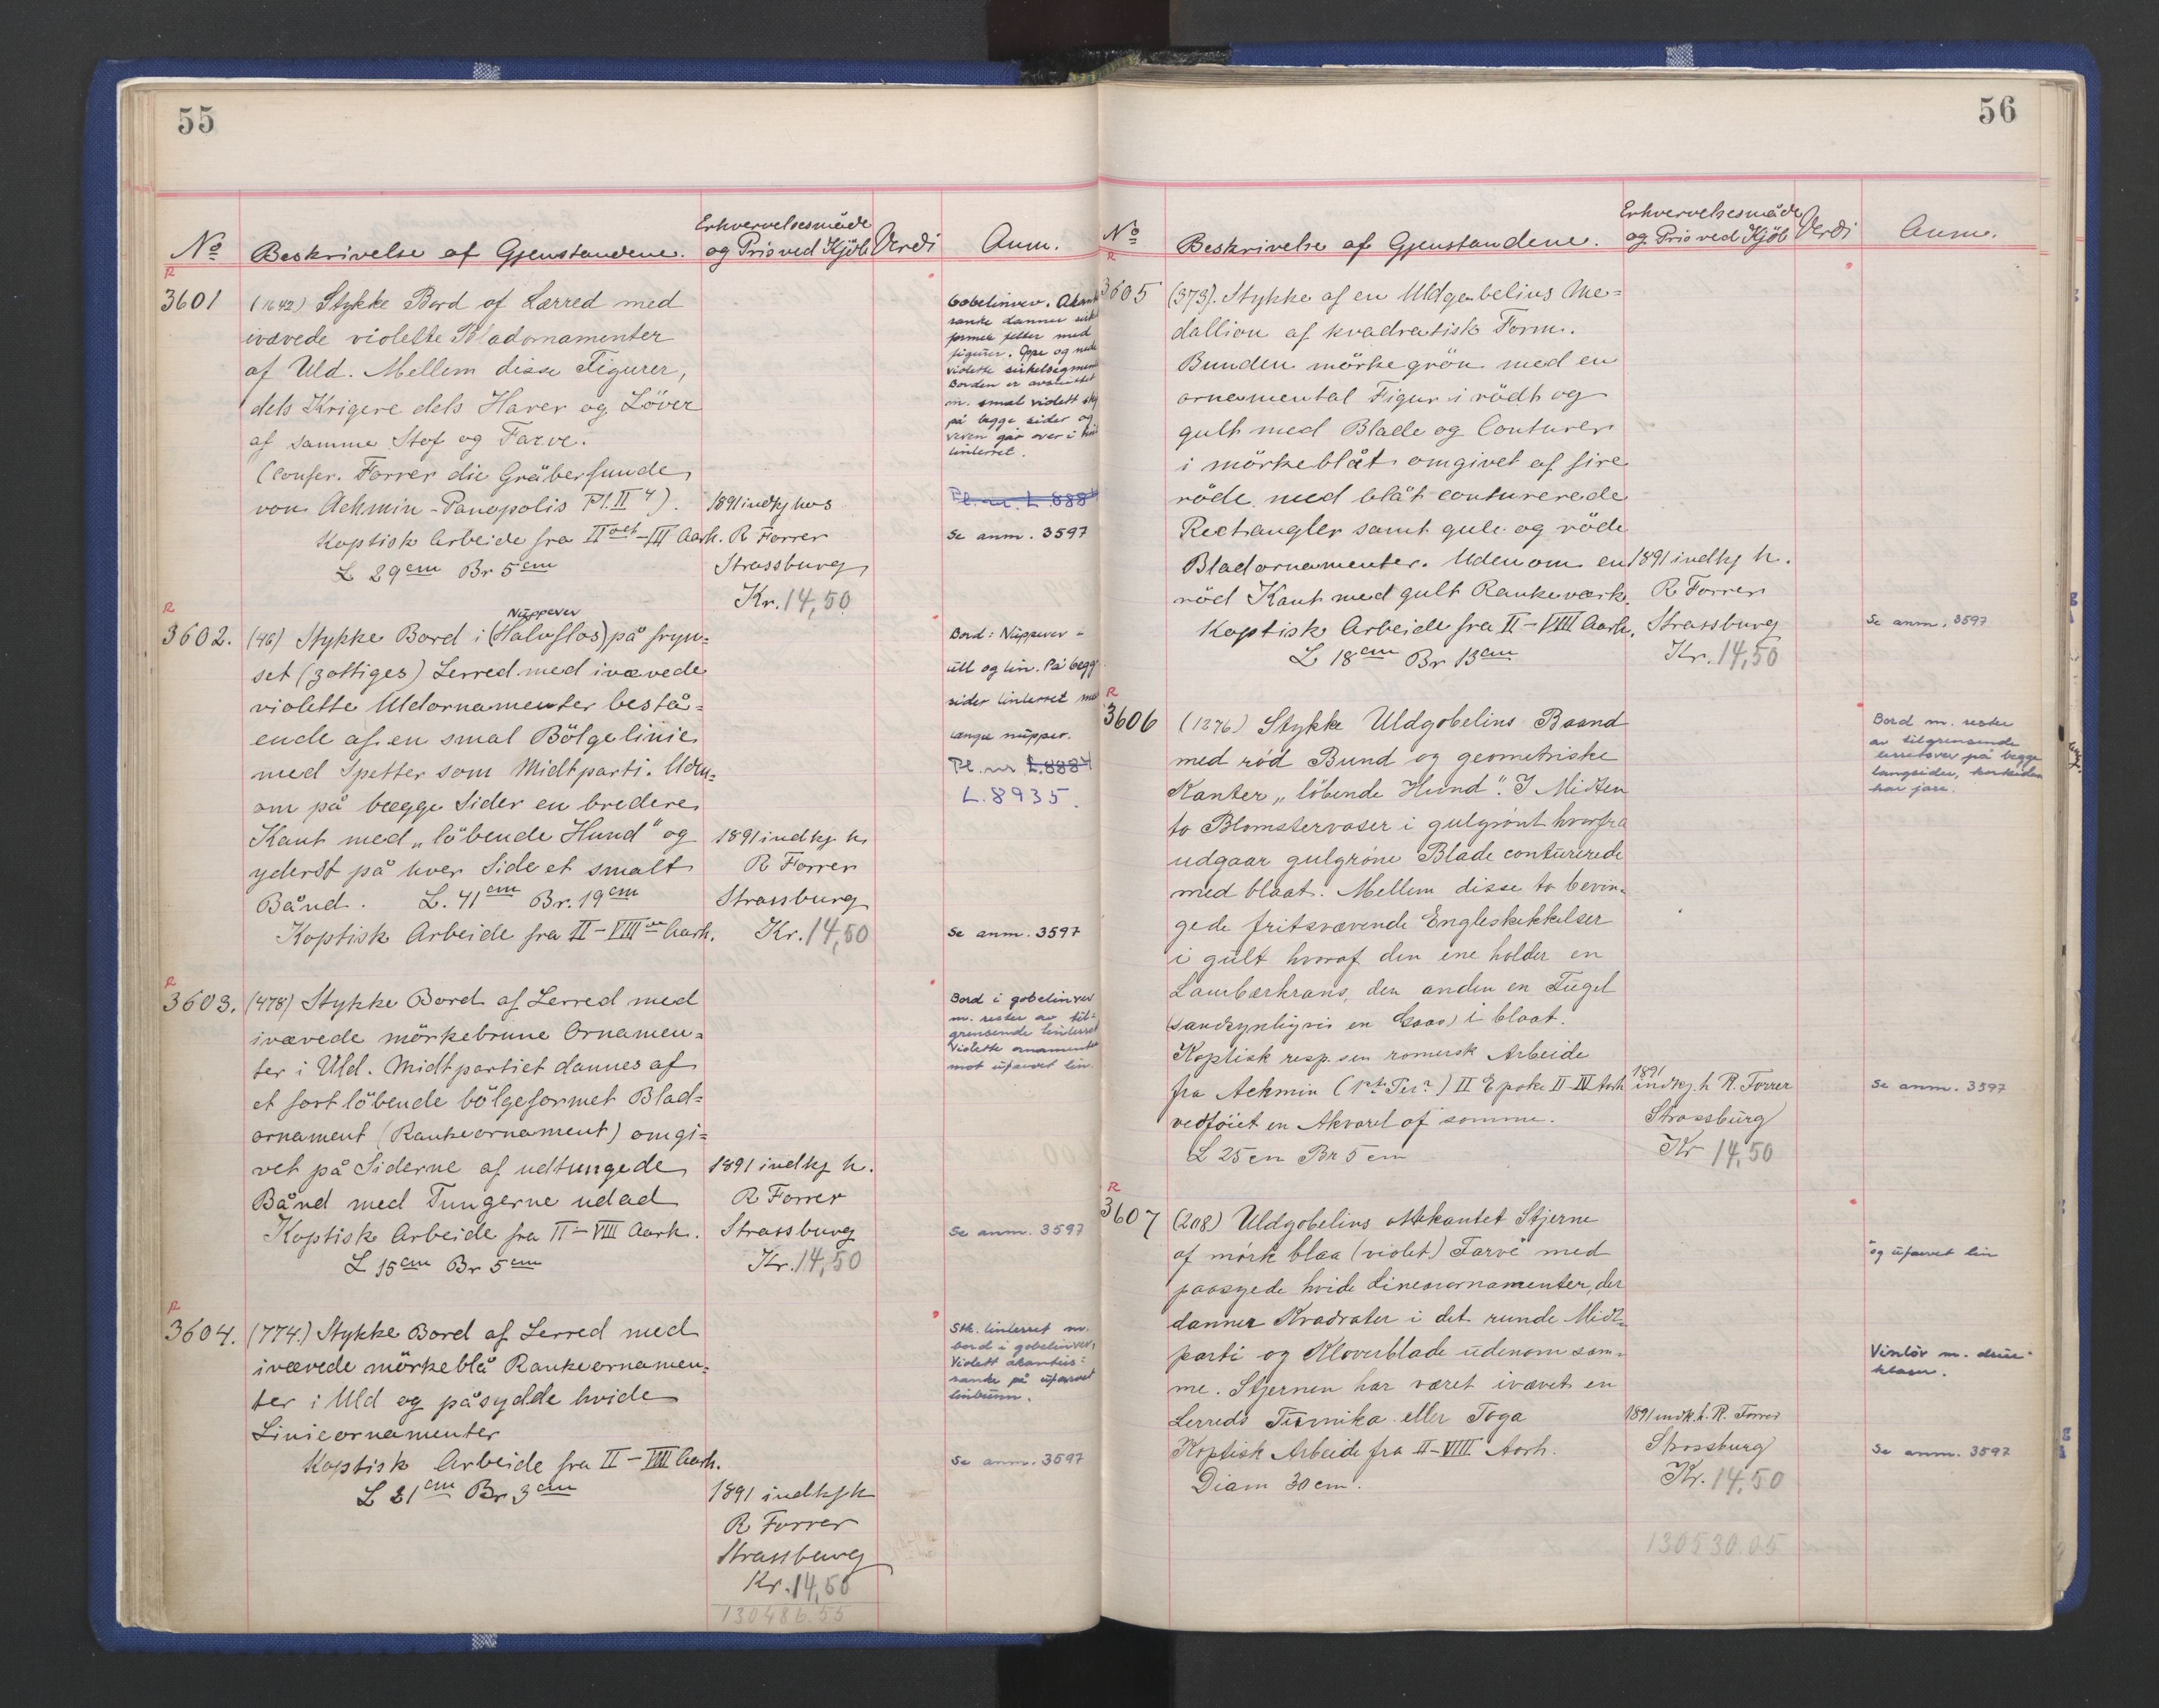 55
No
Beskrivelse af Gjenstandene.
Erhvervelsesmåde
og Pris ved Kjöb
Verdi
Anm.
R
3601
(1642) Stykke Bord af Lærred med
ivævede violette Bladornamenter
af Uld. Mellem disse Figurer,
dels Krigere dels Harer og Löver
af samme Stof og Farve.
(confer. Forrer die Gräberfunde
von Achmin-Panopolis Pl. II 4).
Koptisk Arbeide fra II det-III Aarh.
L 29 cm Br 5 cm
1891 indkj hos
R Forrer
Strassburg
Kr. 14,50
Gobelinvev.
ranke danner
felter med
figurer. Oppe og
violette
Borden er avsluttet
m. smal violett
på begge sider og
veven går over i
linlerret.
Pl. nr. L.888
Se anm. 3597
R
3602.
Nuppever
(46) Stykke Bord i (Halvflos) på fryn=
set (zottiges) Lerred med ivævede
violette Uldornamenter bestå=
ende af en smal Bölgelinie
med Spetter som Midtparti. Uden=
om på begge Sider en bredere
Kant med „löbende Hund" og
yderst på hver Side et smalt
Bånd. L. 41 cm Br. 19 cm
Koptisk Arbeide fra II-VIII Aarh.
1891 indkj h
R Forrer
Strassburg
Kr. 14,50
Bord: Nuppever i
ull og lin. På begge
sider linlerret
lange nupper.
Pl. nr L.8884
L.8935.
Se anm. 3597
R
3603.
(478) Stykke Bord af Lerred med
ivævede mörkebrune Ornamen=
ter i Uld. Midtpartiet dannes af
et fortlöbende bölgeformet Blad=
ornament (Rankeornament) omgi=
vet på Siderne af udtungede
Bånd med Tungerne udad
Koptisk Arbeide fra II-VIII Aarh.
L 15 cm Br 5 cm
1891 indkj h.
R Forrer
Strassburg
Kr. 14,50
Bord i gobelinvev
m. rester av til=
grensende linlerret
Violette ornamenter
mot ufarvet lin.
Se anm. 3597
R
3604.
(774.) Stykke Bord af Lerred med
ivævede mörkeblå Rankeornamen=
ter i Uld og påsydde hvide
Linieornamenter
Koptisk Arbeide fra II-VIII Aarh.
L 21 cm Br 3 cm
1891 indkj h
R Forrer
Strassburg
Kr. 14,50
130486.55
Stk. linlerret m.
bord i gobelinvev,
Violett akantus=
ranke på ufarvet
linbunn.
Se anm. 3597
56
No
Beskrivelse af Gjenstandene.
Erhvervelsesmåde
og Pris ved Kjöb
Verdi
Anm.
R
3605
(373). Stykke af en Uldgobelins Me=
dallion af kvadratisk Form.
Bunden mörkegrön med en
ornamental Figur i rödt og
gult med Blade og Conturer
i mörkeblåt omgivet af fire
röde med blåt conturerede
Rectangler samt gule og röde
Bladornamenter. Udenom en
röd Kant med gult Rankeværk.
Koptisk Arbeide fra II-VIII Aarh.
L 18 cm Br 13 cm
1891 indkj h.
R Forrer
Strassburg
Kr. 14,50
Se anm. 3597
R
3606
(1276) Stykke Uldgobelins Baand
med rød Bund og geometriske
Kanter „löbende Hund". I Midten
to Blomstervaser i gulgrønt hvorfra
udgaar gulgrøne Blade conturerede
med blaat. Mellem disse to bevin=
gede fritsvævende Engleskikkelser
i gult hvoraf den ene holder en
Laurbærkrans, den anden en Fugel
(sandsynligvis en Gaas) i blaat.
Koptisk resp. sen romersk Arbeide
fra Achmin II Epoke II-IV Aarh
vedføiet en Akvarel af samme.
L 25 cm Br 5 cm
1891
indkj. h R. Forrer
Strassburg
Kr 14,50
Bord m. rester
av tilgrensende
lerretsvev på begge
langsider, kortsiden
har jare.
Se anm. 3597
R
3607
(208) Uldgobelins ottekantet Stjerne
af mørk blaa (violet) Farve med
paasyede hvide Lineornamenter, der
danner Kvadrater i det runde Midt=
parti og Kløverblade udenom sam=
me. Stjernen har været ivævet en
Lerreds Tunnika eller Toga
Koptisk Arbeide fra II-VIII Aarh.
Diam 30 cm.
1891 indk. h. R. Forrer
Strassburg
Kr. 14,50
130530.05
og ufarvet lin
Vinløv m. drue-
klaser.
Se anm. 3597